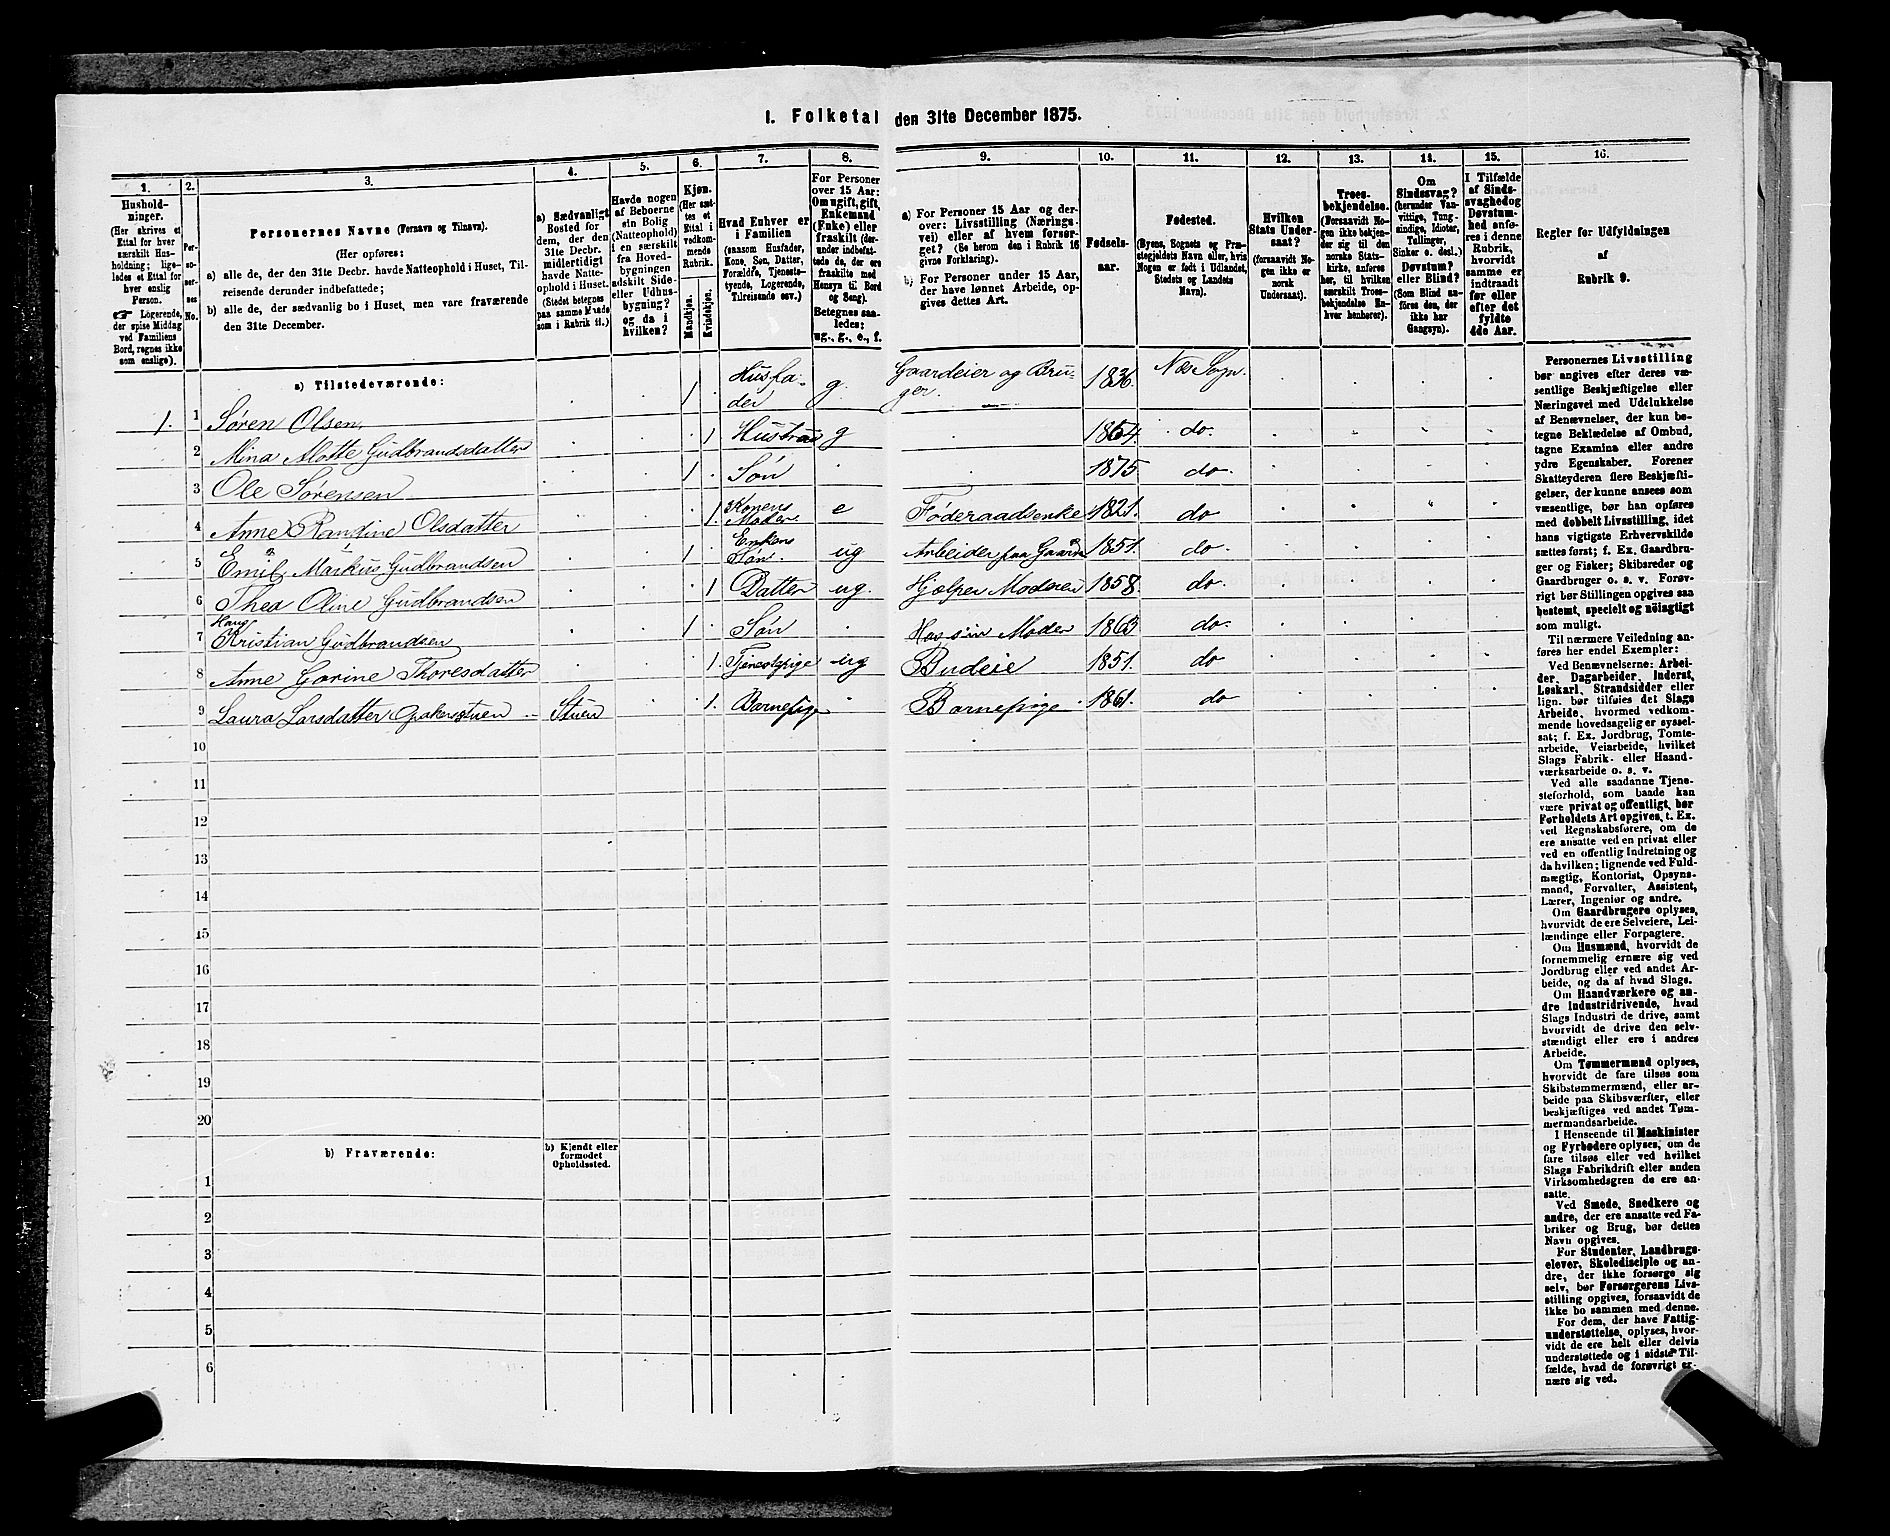 I. Folketal den 31te December 1875.
1. 2. 3. 4. 5. 6. 7. 8. 9. 10. 11. 12. 13. 14. 15. 16.
Hushold-
ninger.
(Her skrives et
Ettal for hver
særskilt Hus-
holdning; lige-
ledes et Ettal for
hver enslig
Person.
☞ Logerende,
der spise Middag
ved Familiens
Bord, regnes ikke
som enslige).
Per-
so-
ner-
nes
No.
Personernes Navne (Fornavn og Tilnavn).
(Her opføres:
a) alle de, der den 31te Decbr. havde Natteophold i Huset, Til-
reisende derunder indbefattede;
b) alle de, der sædvanlig bo i Huset, men vare fraværende
den 31te December.
a) Sædvanligt
Bosted for
dem, der den
31te Decbr.
midlertidigt
havde Natte-
ophold i Huset.
(Stedet betegnes
paa samme Maade
som i Rubrik 11.)
Havde nogen
af Beboerne
sin Bolig
(Natteophold)
i en særskilt
fra Hoved-
bygningen
adskilt Side-
eller Udhus-
bygning?
og da i
hvilken?
Kjøn.
(Her sæt-
tes et
Ettal i
vedkom-
mende
Rubrik.
Mandkjøn.
Kvindekjøn.
Hvad Enhver er
i Familien
(saasom Husfader,
Kone, Søn, Datter,
Forældre, Tjeneste-
tyende, Logerende,
Tilreisende osv.)
For Personer
over 15 Aar:
Om ugift, gift,
Enkemand
(Enke) eller
fraskilt (der-
under indbefat-
tede de, der ere
fraskilte med
Hensyn til Bord
og Seng).
Betegnes saa-
ledes:
ug., g., e., f.
a) For Personer 15 Aar og der-
over: Livsstilling (Nærings-
vei) eller af hvem forsør-
get? (Se herom den i Rubrik 16
givne Forklaring).
b) For Personer under 15 Aar,
der have lønnet Arbeide, op-
gives dettes Art.
Fødsels-
aar.
Fødested.
(Byens, Sognets og Præ-
stegjeldets Navn eller, hvis
Nogen er født i Udlandet,
Stedets og Landets
Navn).
Hvilken
Stats Under-
saat?
(forsaavidt No-
gen ikke er
norsk
Undersaat).
Troes-
bekjendelse.
(Forsaavidt No-
gen ikke bekjen-
der sig til den
norske Stats-
kirke, anføres
her, til hvilken
særskilt Troes-
bekjendelse En-
hver henhører).
Om
Sindssvag?
(herunder Van-
vittige, Tung-
sindige, Idioter,
Tullinger,
Sinker o. desl.)
Døvstum?
eller Blind?
(Som Blind an-
føres den, der
ikke har
Gangsyn).
I Tilfælde
af Sinds-
svaghed og
Døvstum-
hed anfø-
res i denne
Rubrik,
hvorvidt
samme er
indtraadt
før eller
efter det
fyldte
4de Aar.
Regler for Udfyldningen
af
Rubrik 9.
a) Tilstedeværende:
1. 1 Søren Olsen, 1 Husfa-
der g. Gaardeier og Bru-
ger. 1836. Næs Sogn.
2 Mina Alotte Gudbrandsdatter 1 Hustru g 1854. do.
3 Ole Sørensen 1 Søn 1875 do.
4 Anne Randine Olsdatter 1. Konens
Moder e Føderaadsenke 1821. do
5 Emil Markus Gudbrandsen 1 Enkens
Søn. ug Arbeider paa Gaarden 1851. do.
6 Thea Oline Gudbrandsen 1 Datter ug. Hjælper Moderen 1858. do.
7 Hans
Kristian Gudbrandsen 1 Søn Hos sin Moder 1863 do.
8 Anne Gorine Thoresdatter 1. Tjenestpige ug Budeie 1851. do
9 Laura Larsdatter Opakerstuen Stuen 1. Barnepige Barnepige 1861. do
10
11
12
13
14
15
16
17
18
19
20
b) Fraværende:
b) Kjendt eller
formodet
Opholdssted.
1
2
3
4
5
6
Personernes Livsstilling
bør angives efter deres væ-
sentlige Beskjæftigelse eller
Næringsvei med Udelukkelse
af Benævnelser, der kun be-
tegne Beklædelse af Ombud,
tagne Examina eller andre
ydre Egenskaber. Forener
Skatteyderen flere Beskjæfti-
gelser, der kunne ansees som
væsentlige, bør han opføres
med dobbelt Livsstilling, idet
hans vigtigste Erhvervskilde
sættes først; f. Ex. Gaardbru-
ger og Fisker; Skibsreder og
Gaardbruger o. s. v. Forøv-
rigt bør Stillingen opgives saa
bestemt, specielt og nöiagtigt
som muligt.
Til nærmere Veiledning an-
føres her endel Exempler:
Ved Benævnelserne: Arbei-
der, Dagarbeider, Inderst,
Løskarl, Strandsidder eller
lign. bør tilføies det Slags
Arbeide, hvormed vedkom-
mende hovedsagelig er syssel-
sat; f. Ex. Jordbrug, Tomte-
arbeide, Veiarbeide, hvilket
Slags Fabrik- eller Haand-
værksarbeide o. s. v.
Ved alle saadanne Tjene-
steforhold, som baade kan
være privat og offentligt, bør
Forholdets Art opgives, t. Ex.
ved Regnskabsførere, om de
ere ansatte ved en privat eller
ved en offentlig Indretning og
da hvilken; lignende ved Fuld-
mægtig, Kontorist, Opsyns-
mand, Forvalter, Assistent,
Lærer, Ingeniør og andre.
Om Gaardbrugere oplyses,
hvorvidt de ere Selveiere, Lei-
lændinge eller Forpagtere.
Om Husmænd, hvorvidt de
fornemmelig ernære sig ved
Jordbrug eller ved andet Ar-
beide, og da af hvad Slags.
Om Haandværkere og an-
dre Industridrivende, hvad
Slags Industri de drive, samt
hvorvidt de drive den selv-
stændigt eller ere i andres
Arbeide.
Om Tømmermænd oplyses,
hvorvidt de fare tilsøs som
Skibstømmermænd, eller ar-
beide paa Skibsværfter, eller
beskjæftiges ved andet Tøm-
mermandsarbeide.
I Henseende til Maskinister
og Fyrbødere oplyses, om de
fare tilsøs eller ved hvilket
Slags Fabrikdrift eller anden
Virksomhedsgren de ere an-
satte.
Ved Smede, Snedkere og
andre, der ere ansatte ved Fa-
briker og Brug, bør dettes
Navn opgives.
For Studenter, Landbrugs-
elever, Skoledisciple og an-
dre, der ikke forsørge sig
selv, bør Forsørgerens Livs-
stilling opgives, forsaavidt de
ikke bo sammen med denne.
For dem, der have Fattig-
understøttelse, oplyses, hvor-
vidt de ere helt eller delvis
understøttede og i sidste Til-
fælde, hvad de forøvrigt er-
nære sig ved.